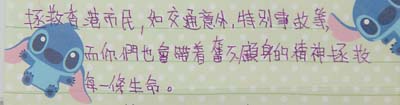 拯救香港市民,如交通意外,特別事故等,
而你們也會帶着奮不顧身的精神拯救
每一條生命。